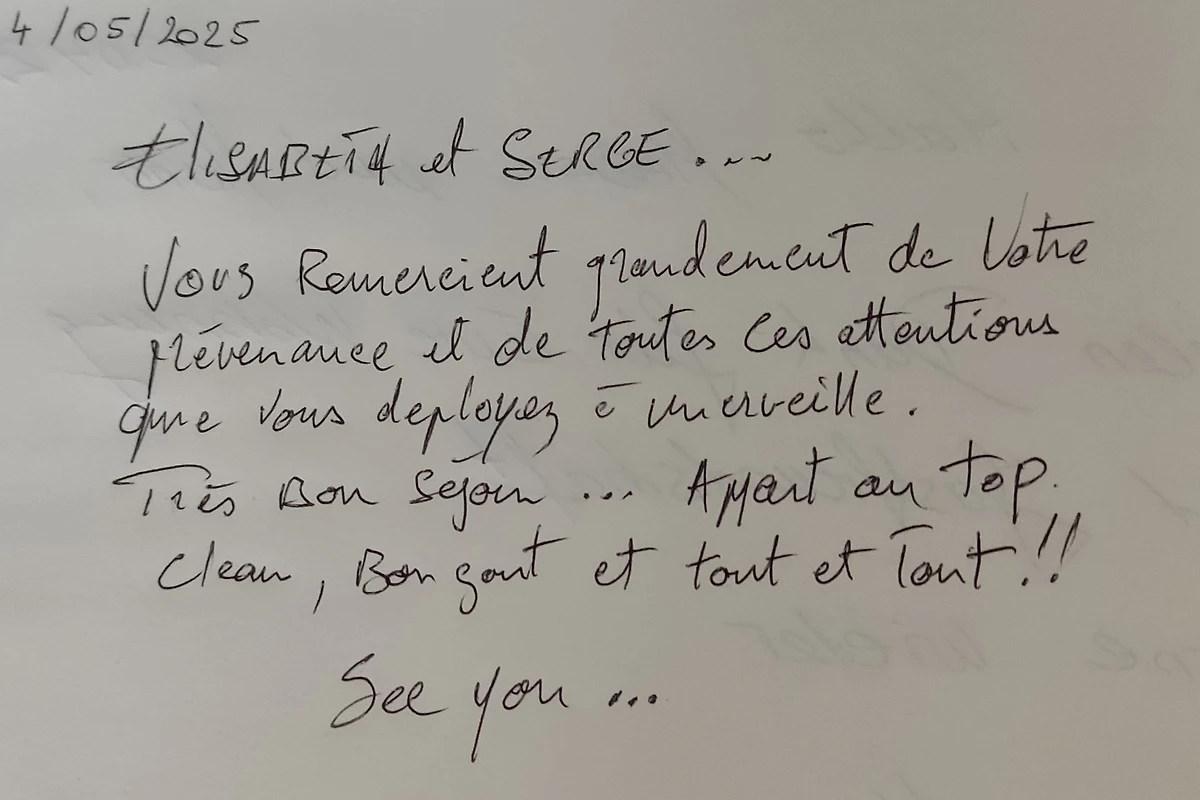 4/05/2025
ELISABETH et SERGE ....
Vous Remercient grandement de Votre
prévenance et de toutes ces attentions
que vous deployez à merveille.
Très Bon séjour ... Appart au top.
clean, Bon gout et tout et Tout !!
See you ...